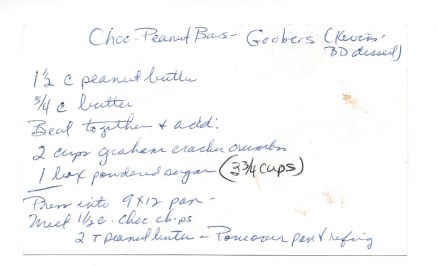 Choc-Peanut Bars - Goobers (Kevins'
BD dessert)
1½ c peanut butter
¾ c butter
Beat together & add:
2 cups graham cracker crumbs
1 box powdered sugar (3¾ cups)
Press into 9x12 pan -
Melt 1½ c. choc chips
2 T peanut butter - Pour over pan & refrig